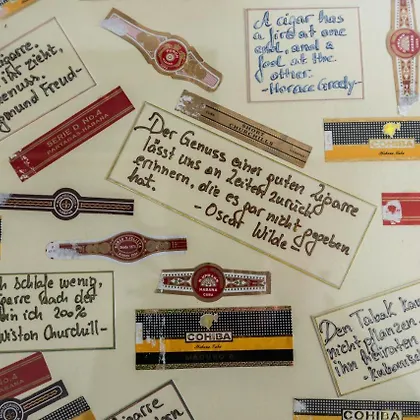 A cigar has
a fire at one
end, and a
fool at the
other.
-Horace Greely-
Zigarre.
ihr zieht,
Genuss.
Sigmund Freud-
SERIE D No.4
PARTAGAS-HABANA
SHORT
CHURCHILLS
COHIBA
Habana, Cuba
Der Genuss einer guten Zigarre
lässt uns an Zeiten zurück
erinnern, die es gar nicht gegeben
hat.
-Oscar Wilde-
UPMANN
HABANA
CUBA
ch schlafe wenig,
garre nach der
bin ich 200%
Winston Churchill-
COHIBA
Habana, Cuba
Den Tabak
nicht pflanzen
ihn heiraten
No.4
COHIBA
garre